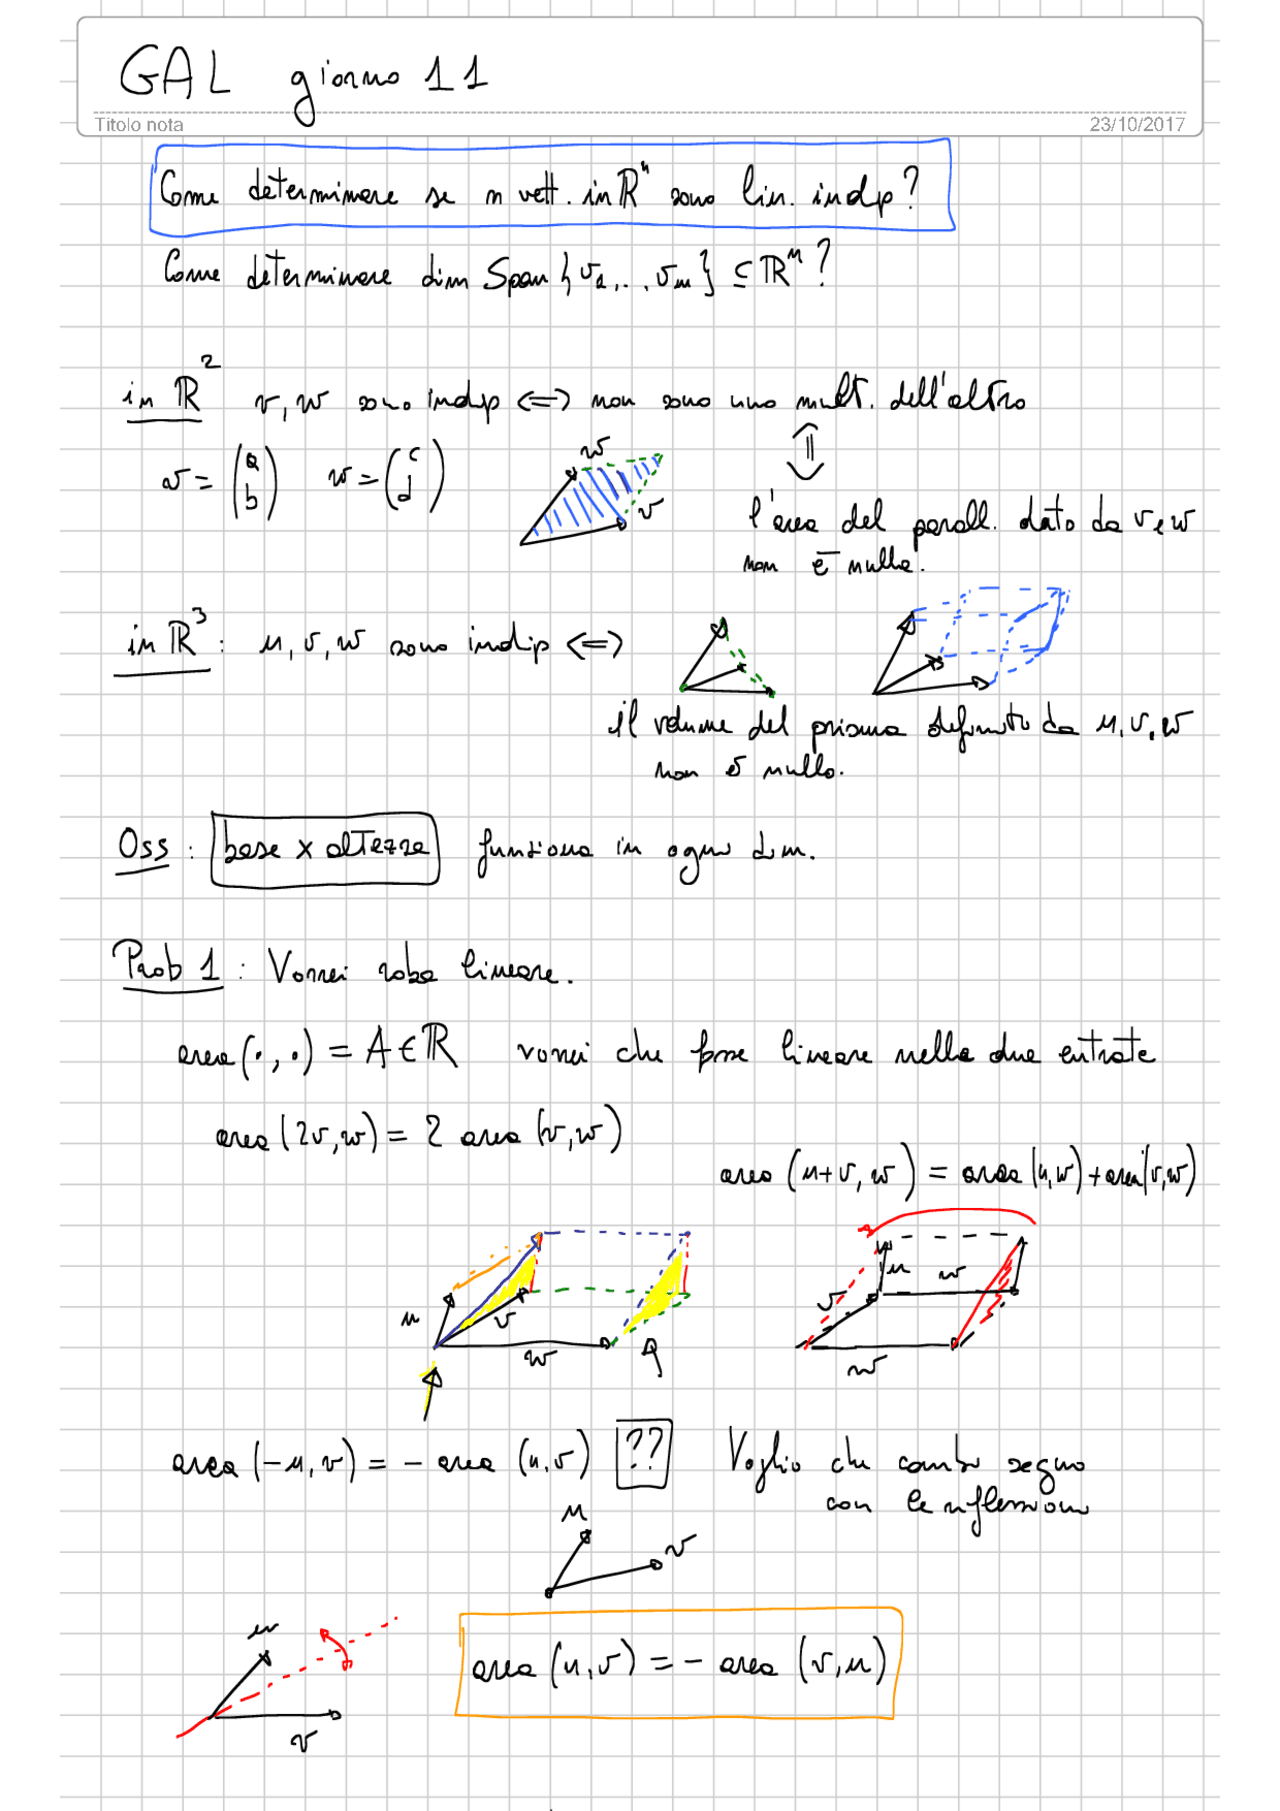 GAL giorno 11
Titolo nota 23/10/2017
Come determinare se n vett. in ℝⁿ sono lin. indip?
Come determinare dim Span {v₁,..,vₘ} ⊆ ℝⁿ?
in ℝ² v, w sono indip ⇔ non sono uno mult. dell'altro
⇕
v = (a b) w = (c d)
w
v
l'area del parall. dato da v e w
non è nulla.
in ℝ³: u, v, w sono indip ⇔
il volume del prisma definito da u, v, w
non è nullo.
Oss: base x altezza funziona in ogni dim.
Prob 1: Vorrei roba lineare.
area(·,·) = A ∈ ℝ vorrei che fosse lineare nelle due entrate
area(2v,w) = 2 area(v,w)
area(u+v, w) = area(u,w)+area(v,w)
u v w
u w v w
area(-u,v) = - area(u,v) ?? Voglio che cambi segno
con le riflessioni
u
v
w
v
area(u,v) = - area(v,u)